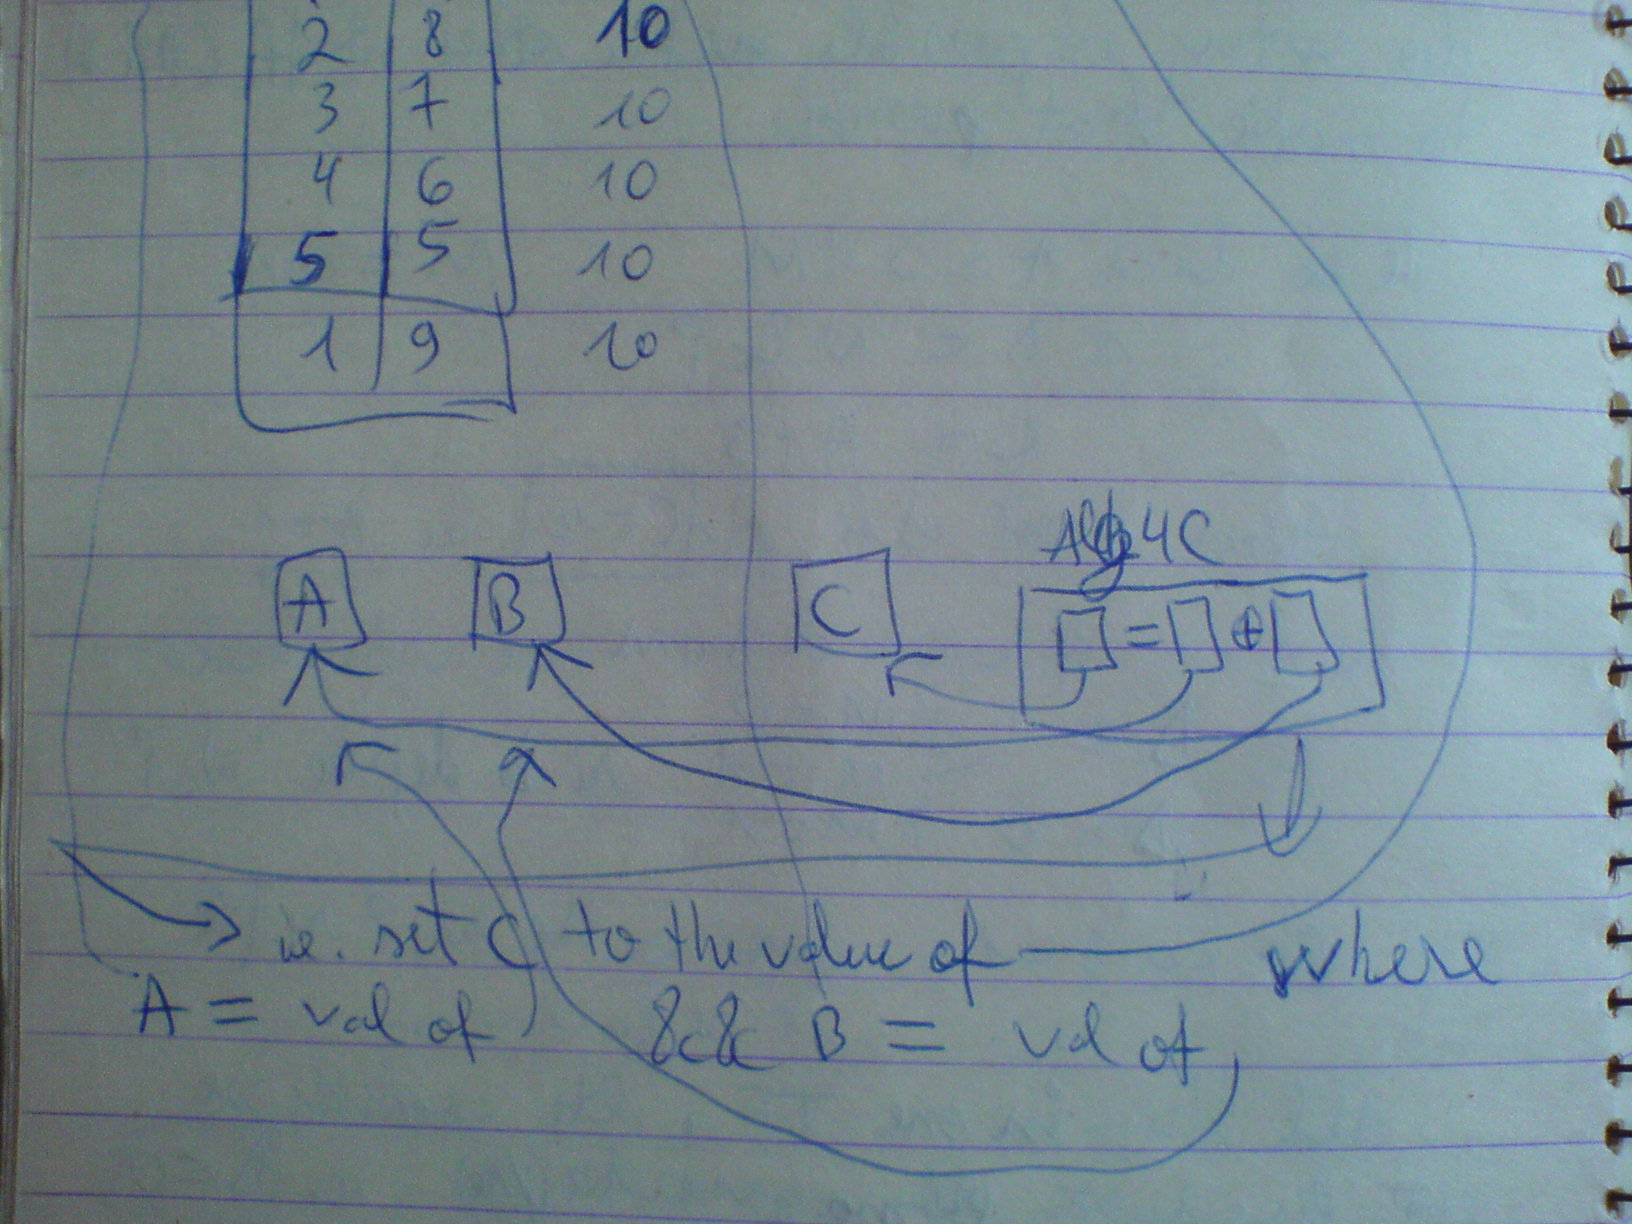 2 8 10
3 7 10
4 6 10
5 5 10
1 9 10
Alg4C
A B C = +
i.e. set C to the value of where
A = val of && B = val of